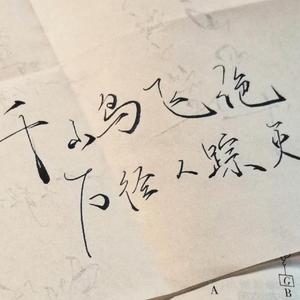 千山鸟飞绝
万径人踪灭
G
A B